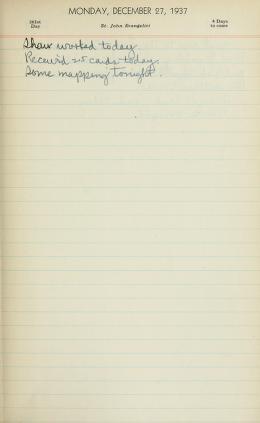 MONDAY, DECEMBER 27, 1937
361st Day St. John Evangelist 4 Days to come
Shaw worked today.
Receiv'd 25 cards today.
Some mapping tonight.